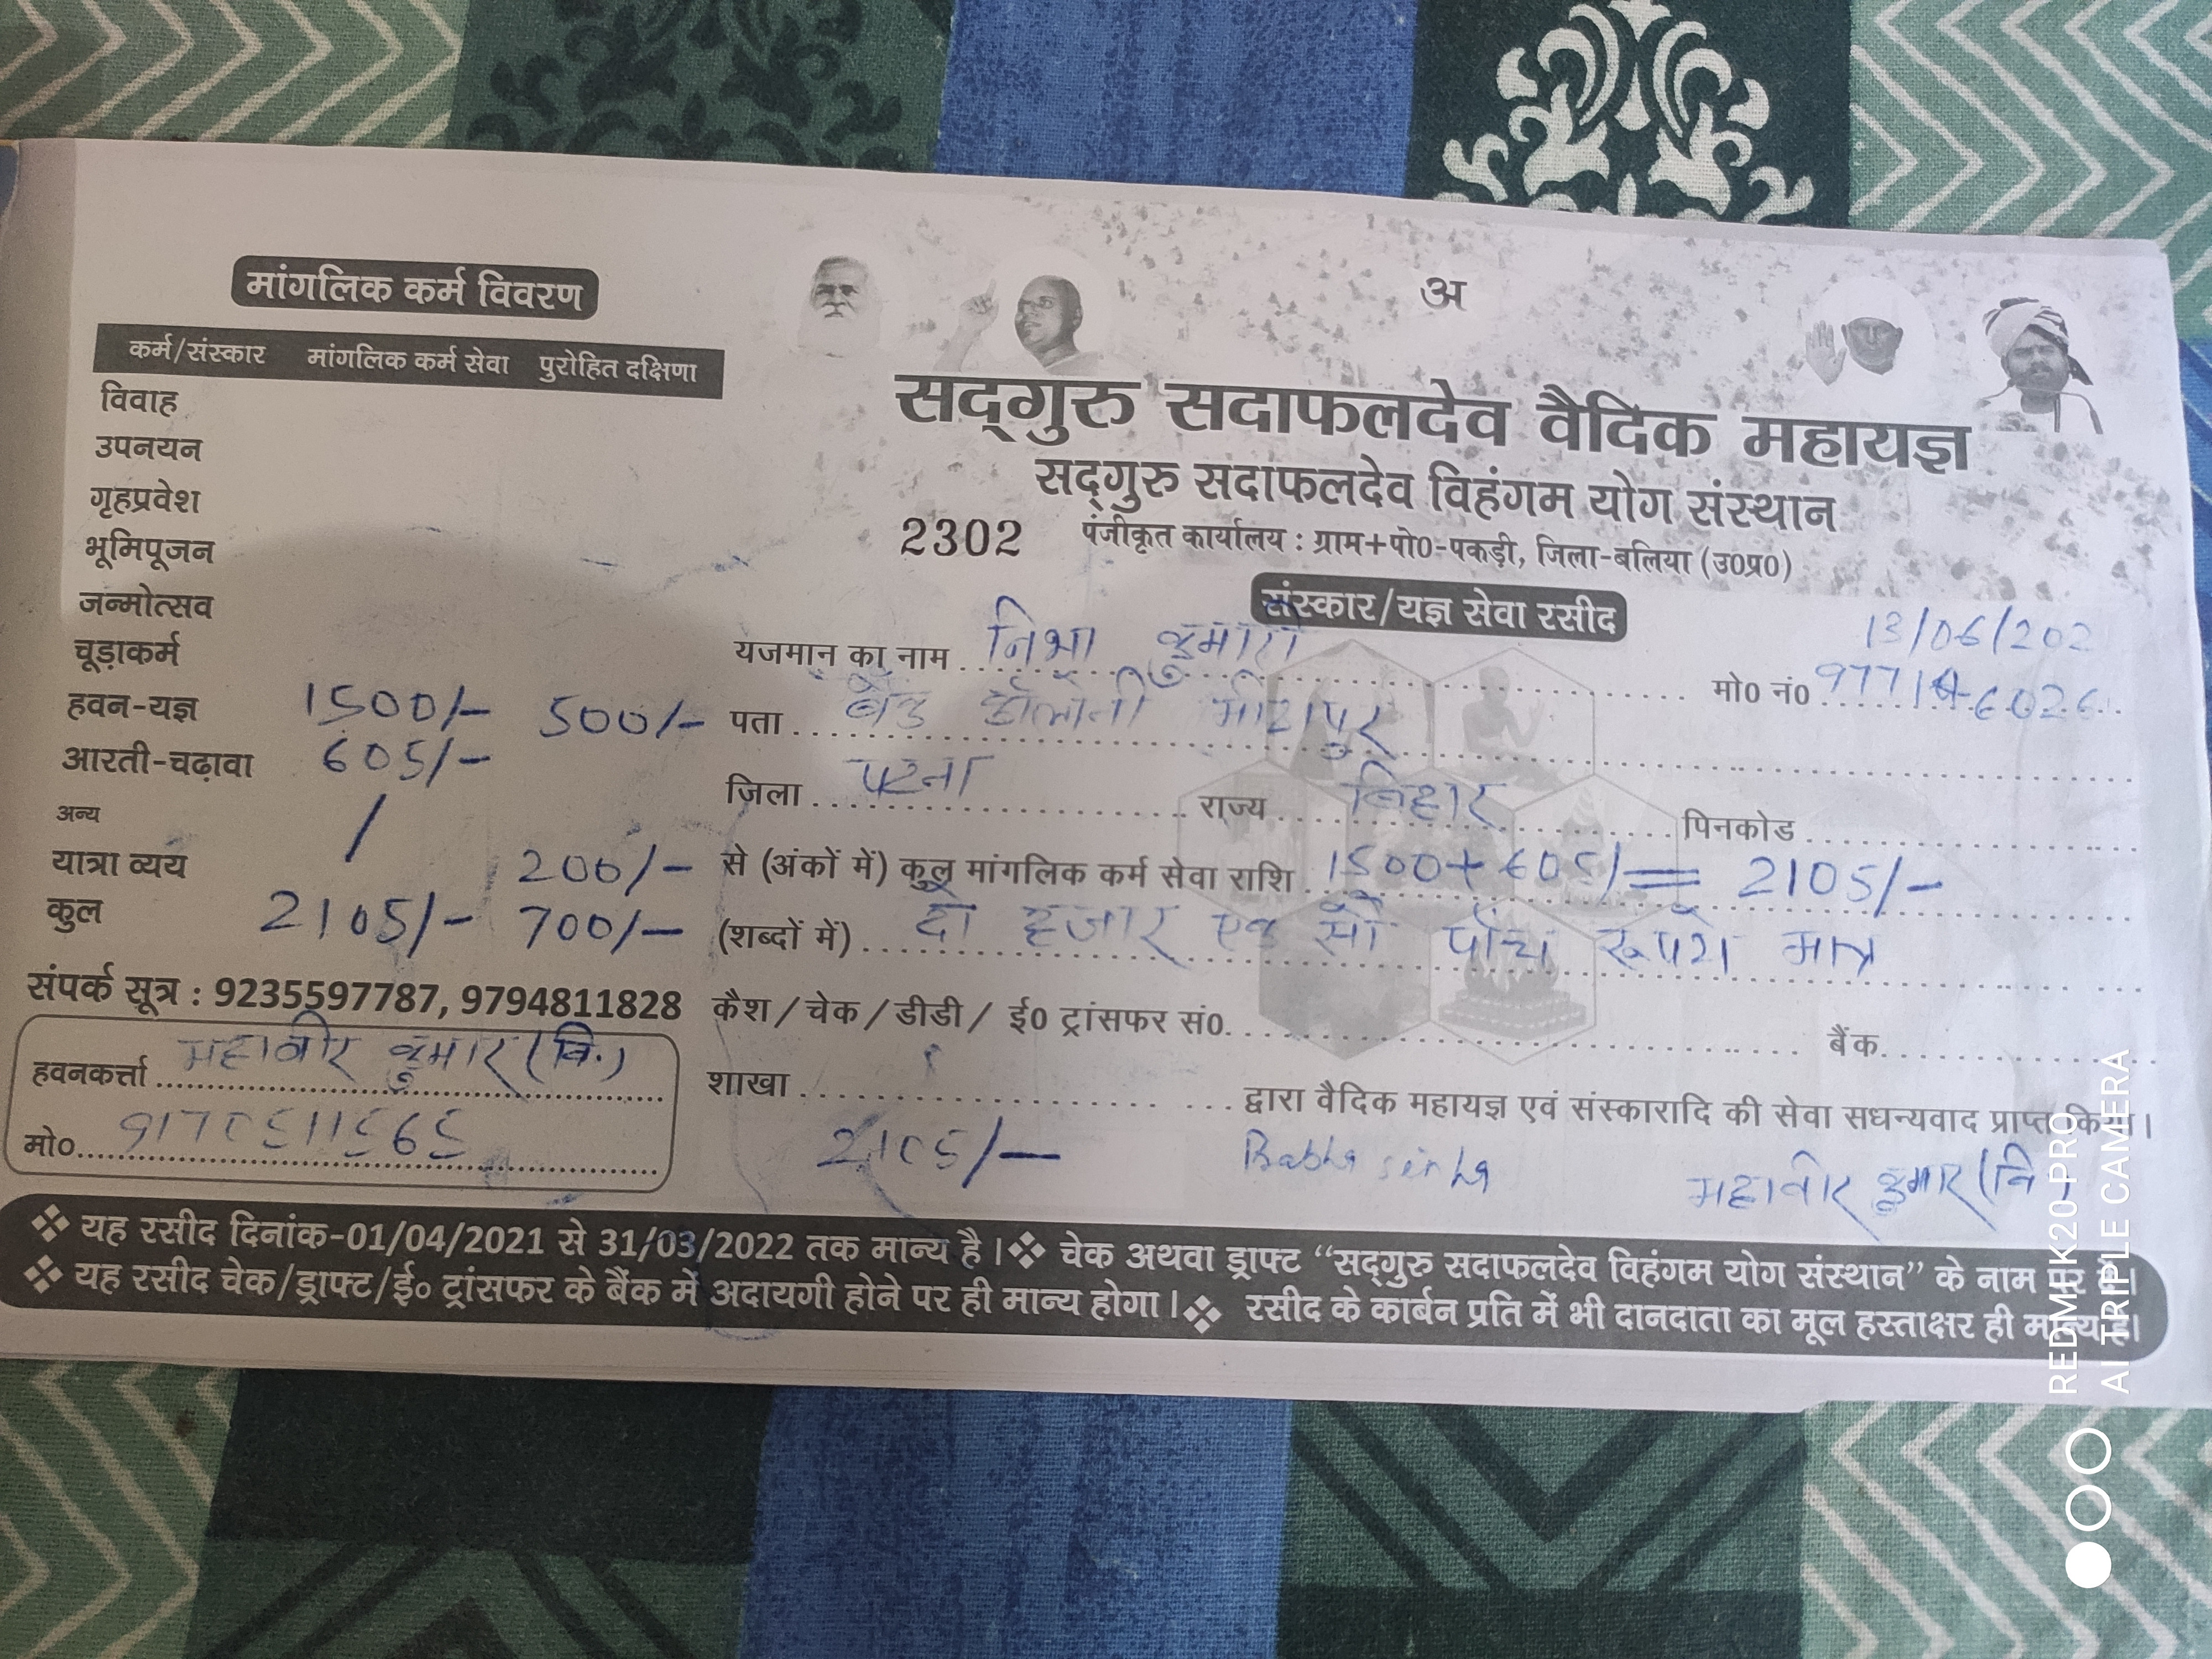 मांगलिक कर्म विवरण
कर्म/संस्कार मांगलिक कर्म सेवा पुरोहित दक्षिणा
विवाह
उपनयन
गृहप्रवेश
भूमिपूजन
जन्मोत्सव
चूड़ाकर्म
हवन-यज्ञ 1500/- 500/-
आरती-चढ़ावा 605/-
अन्य /
यात्रा व्यय 200/-
कुल 2105/- 700/-
संपर्क सूत्र : 9235597787, 9794811828
हवनकर्त्ता महावीर कुमार (वि.)
मो०
अ
सद्गुरु सदाफलदेव वैदिक महायज्ञ
सद्गुरु सदाफलदेव विहंगम योग संस्थान
2302 पंजीकृत कार्यालय : ग्राम+पो0-पकड़ी, जिला-बलिया (उ0प्र0)
संस्कार/यज्ञ सेवा रसीद
13/06/202
यजमान का नाम निभा कुमारी मो0 नं0
पता बैंक कॉलोनी मीठापुर
जिला पटना राज्य बिहार पिनकोड
से (अंकों में) कुल मांगलिक कर्म सेवा राशि 1500+605/= 2105/-
(शब्दों में) दो हजार एक सौ पाँच रूपये मात्र
कैश/चेक/डीडी/ ई0 ट्रांसफर सं0. बैंक
शाखा द्वारा वैदिक महायज्ञ एवं संस्कारादि की सेवा सधन्यवाद प्राप्त किया।
2105/- महावीर कुमार (वि
❖ यह रसीद दिनांक-01/04/2021 से 31/03/2022 तक मान्य है। ❖ चेक अथवा ड्राफ्ट “सद्गुरु सदाफलदेव विहंगम योग संस्थान” के नाम पर दें।
❖ यह रसीद चेक/ड्राफ्ट/ई० ट्रांसफर के बैंक में अदायगी होने पर ही मान्य होगा। ❖ रसीद के कार्बन प्रति में भी दानदाता का मूल हस्ताक्षर ही मान्य है।
REDMI K20 PRO
AI TRIPLE CAMERA